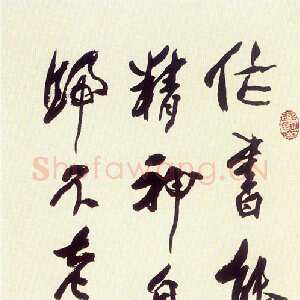 作書能
精神自
歸不老
Shufawang.CN